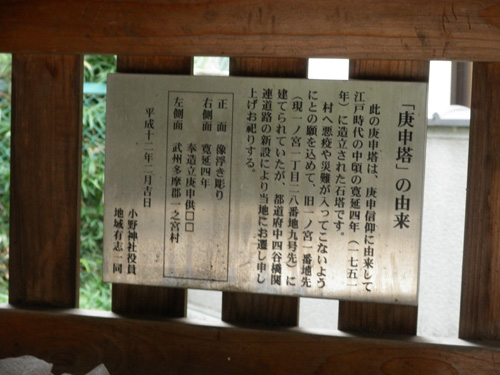 「庚申塔」の由来
此の庚申塔は、庚申信仰に由来して
江戸時代の中頃の寛延四年（一七五一
年）に造立された石塔です。
村へ悪疫や災難が入ってこないよう
にとの願を込めて、旧一ノ宮一番地先
（現一ノ宮一丁目二八番地九号先）に
建てられていたが、都道府中四谷橋関
連道路の新設により当地にお遷し申し
上げお祀りする。
正　面　像浮き彫り
右側面　寛延四年
奉造立庚申供□□
左側面　武州多摩郡一之宮村
平成十二年二月吉日
小野神社役員
地域有志一同